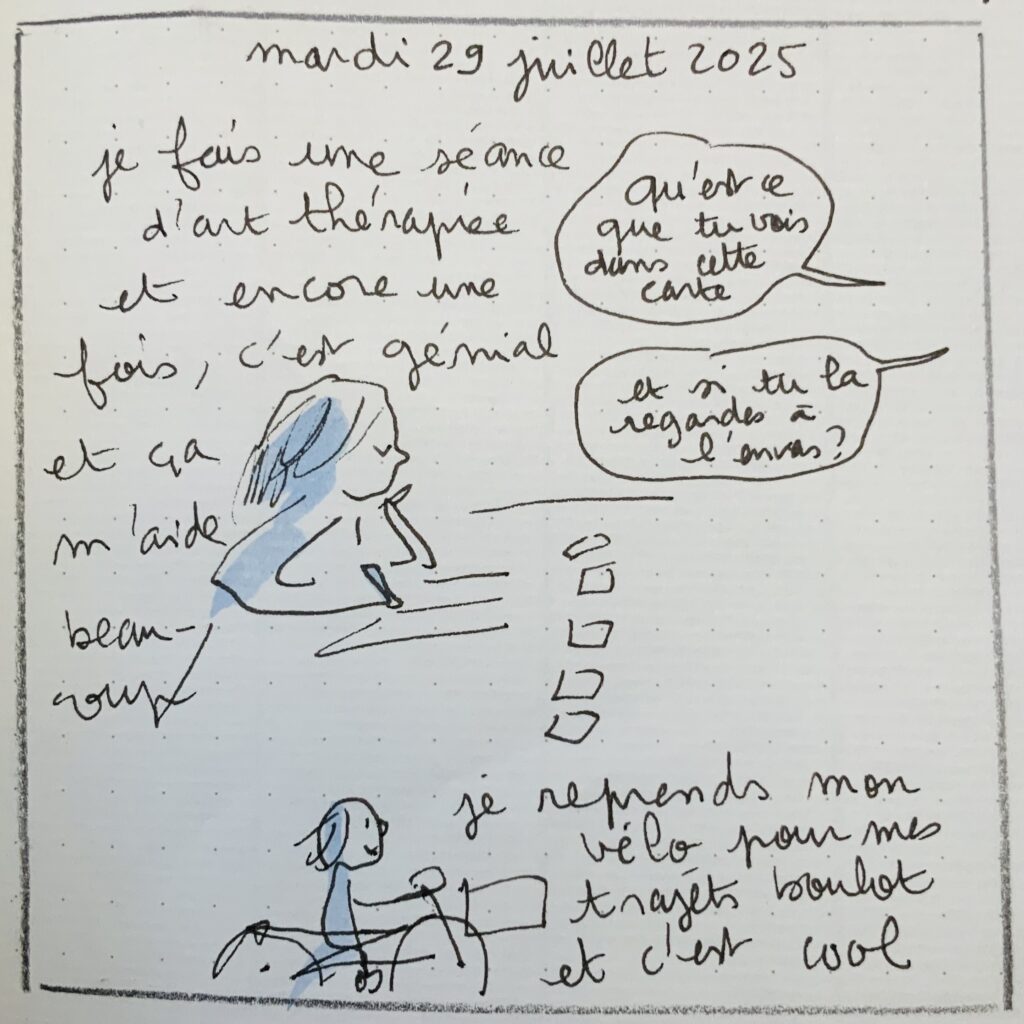 mardi 29 juillet 2025
je fais une séance
d'art thérapiée
et encore une
fois, c'est génial
et ça
m'aide
beau-
coup
qu'est ce
que tu vois
dans cette
carte
et si tu la
regardes à
l'envers?
je reprends mon
vélo pour mes
trajets boulot
et c'est cool